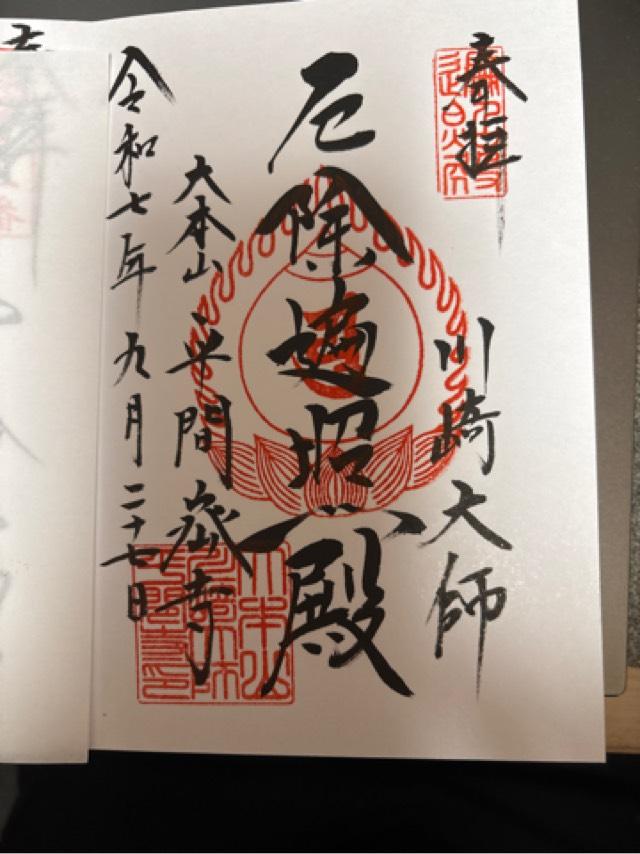 奉拝
川崎大師
厄除遍照殿
大本山 平間寺
令和七年 九月二十七日